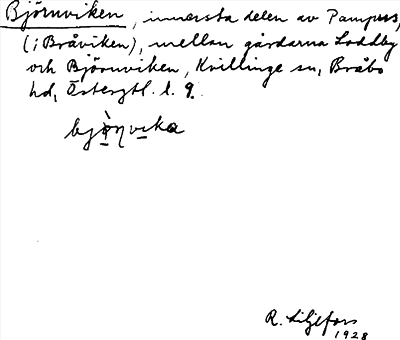 Björnviken, innersta delen av Pampus,
(i Bråviken), mellan gårdarna Loddby
och Björnviken, Kvillinge sn, Bråbo
hd, Östergtl. l. 9.
bjò̠ɳvi̠ka
R. Liljefors
1928